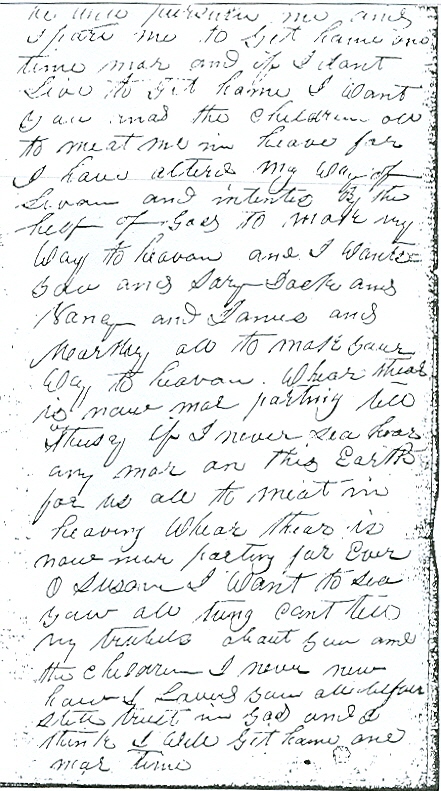 he will presurve me and
Spare me to Git home one
time mor and if I dont
Live to git home I want
you and the Children all
to meat me in heave for
I have alterd My Way of
Livan and intentes By the
help of God to mak my
Way to heavan and I Wants
you and Sary Jack and
Nancy and James and
Marthy all to mak your
Way to heavan. Whear thear
is now mor parting tell
thusy if I never sea hear
any mor on this Earth
for us all to meat in
heaving Whear thear is
now mur parting for Ever
O Susan I Want to sea
you all tung cant tell
my trubels about you and
the children I never new
how I Loved you all before
still trust in God and I
think I Will Git home one
mor time